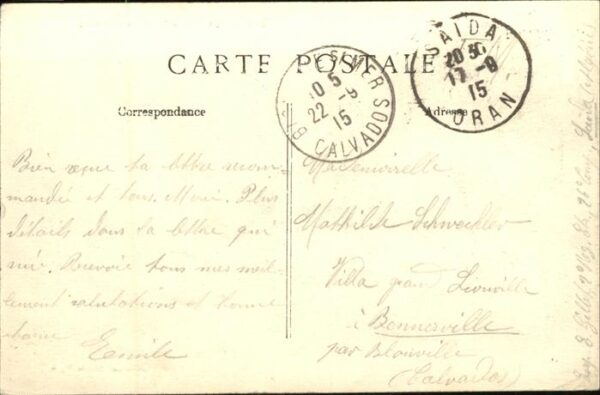 CARTE POSTALE
Correspondance
Adresse
SAIDA
20 30
17 -9
15
ORAN
S/MER
10 5
22 -9
15
CALVADOS
Bien reçue ta lettre recom-
mandée et tous. Merci. Plus
détails dans la lettre qui
suit. Recevoir tous mes meil-
lement salutations et bonne
Emile
Mademoiselle
Mathilde Schweckler
Villa grand Lionville
à Bennerville
par Blonville
(Calvados)